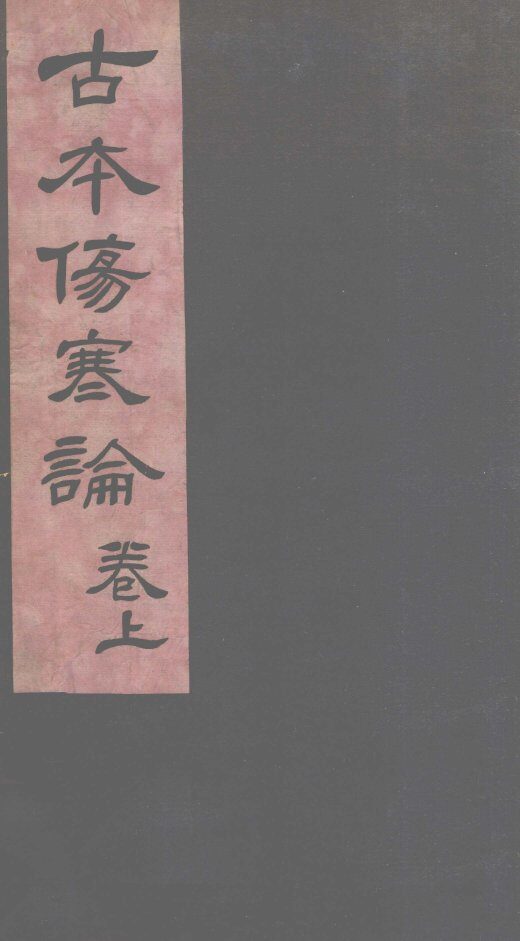 古本傷寒論
卷上